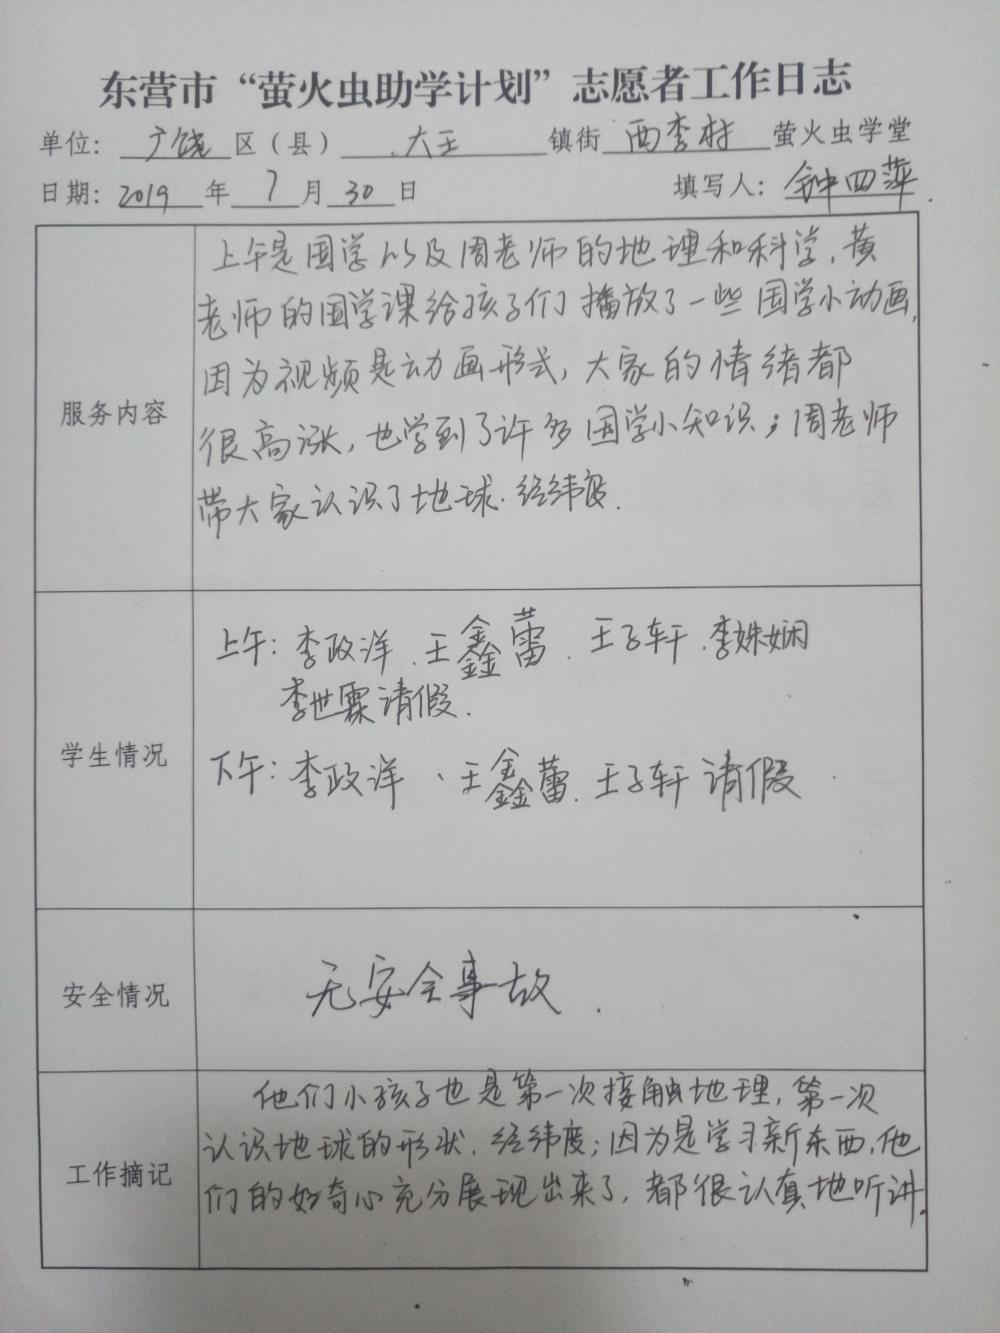 东营市“萤火虫助学计划”志愿者工作日志
单位：广饶区（县）大王镇街西李村萤火虫学堂
日期：2019年7月30日 填写人：钟四萍.
服务内容
上午是国学以及周老师的地理和科学，黄
老师的国学课给孩子们播放了一些国学小动画，
因为视频是动画形式，大家的情绪都
很高涨，也学到了许多国学小知识；周老师
带大家认识了地球、经纬度.
学生情况
上午：李政洋、王鑫蕾、王子轩、李姝娴
李世霖请假.
下午：李政洋、王鑫蕾、王子轩请假
安全情况
无安全事故.
工作摘记
他们小孩子也是第一次接触地理，第一次
认识地球的形状、经纬度；因为是学习新东西，他
们的好奇心充分展现出来了，都很认真地听讲。